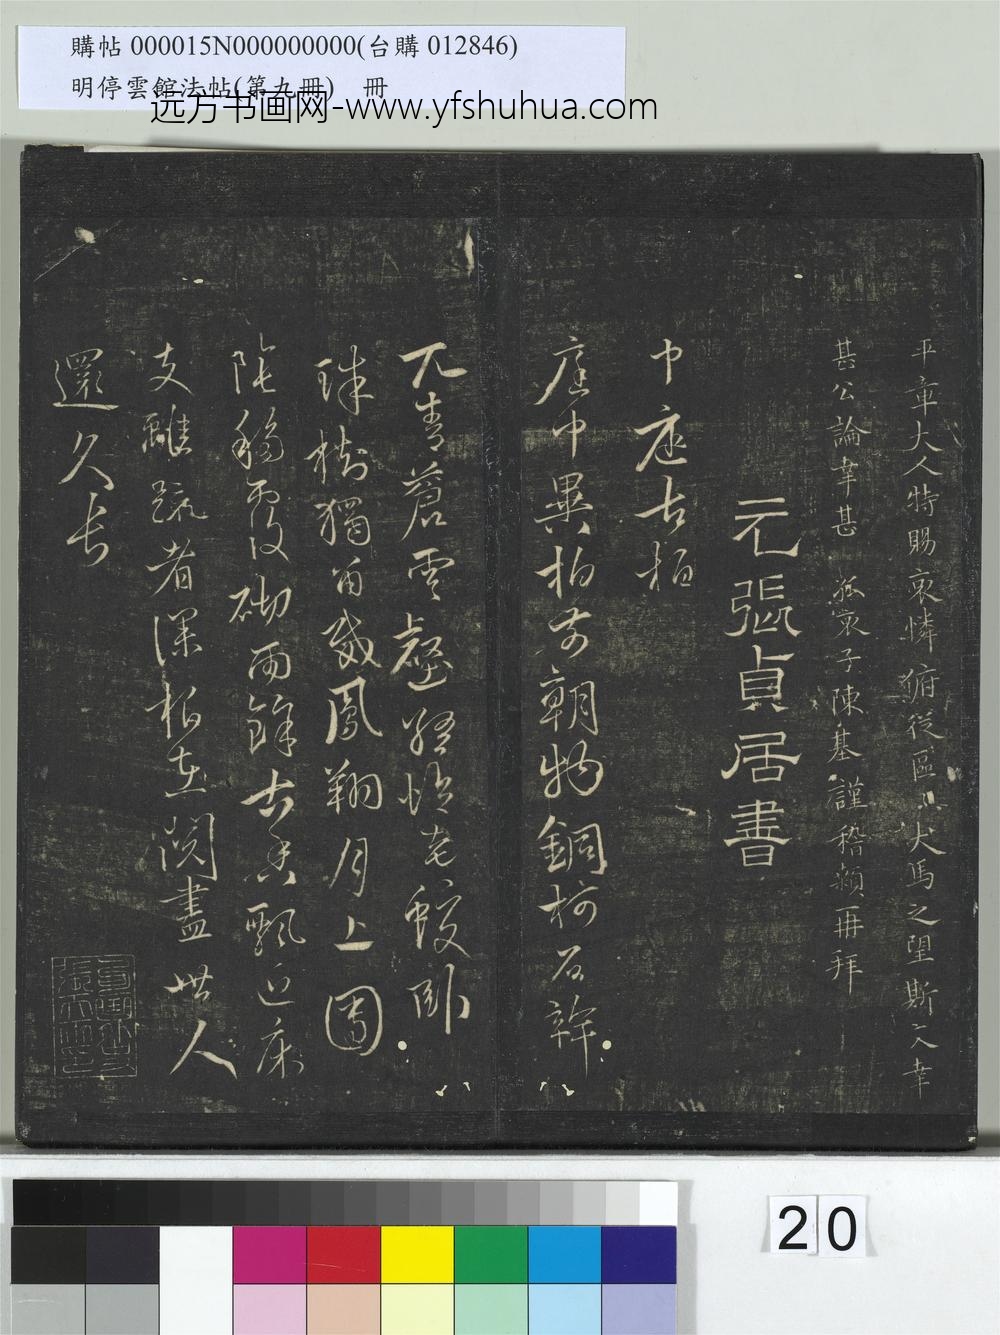 購帖 000015N000000000(台購 012846)
明停雲館法帖(第九冊) 冊
远方书画网-www.yfshuhua.com
平章大人特賜哀憐獮從區〻犬馬之望斯文幸
甚公論幸甚 孤哀子陳基謹稽顙再拜
元張貞居書
中庭古柏
庭中異柏前朝物銅柯石幹
兀青蒼雲凝翠惱老蛟臥
珠樹獨留威鳳翔月上團
陰移覆砌雨餘古香飄近床
支離疏者深根在閱盡世人
還久長
20